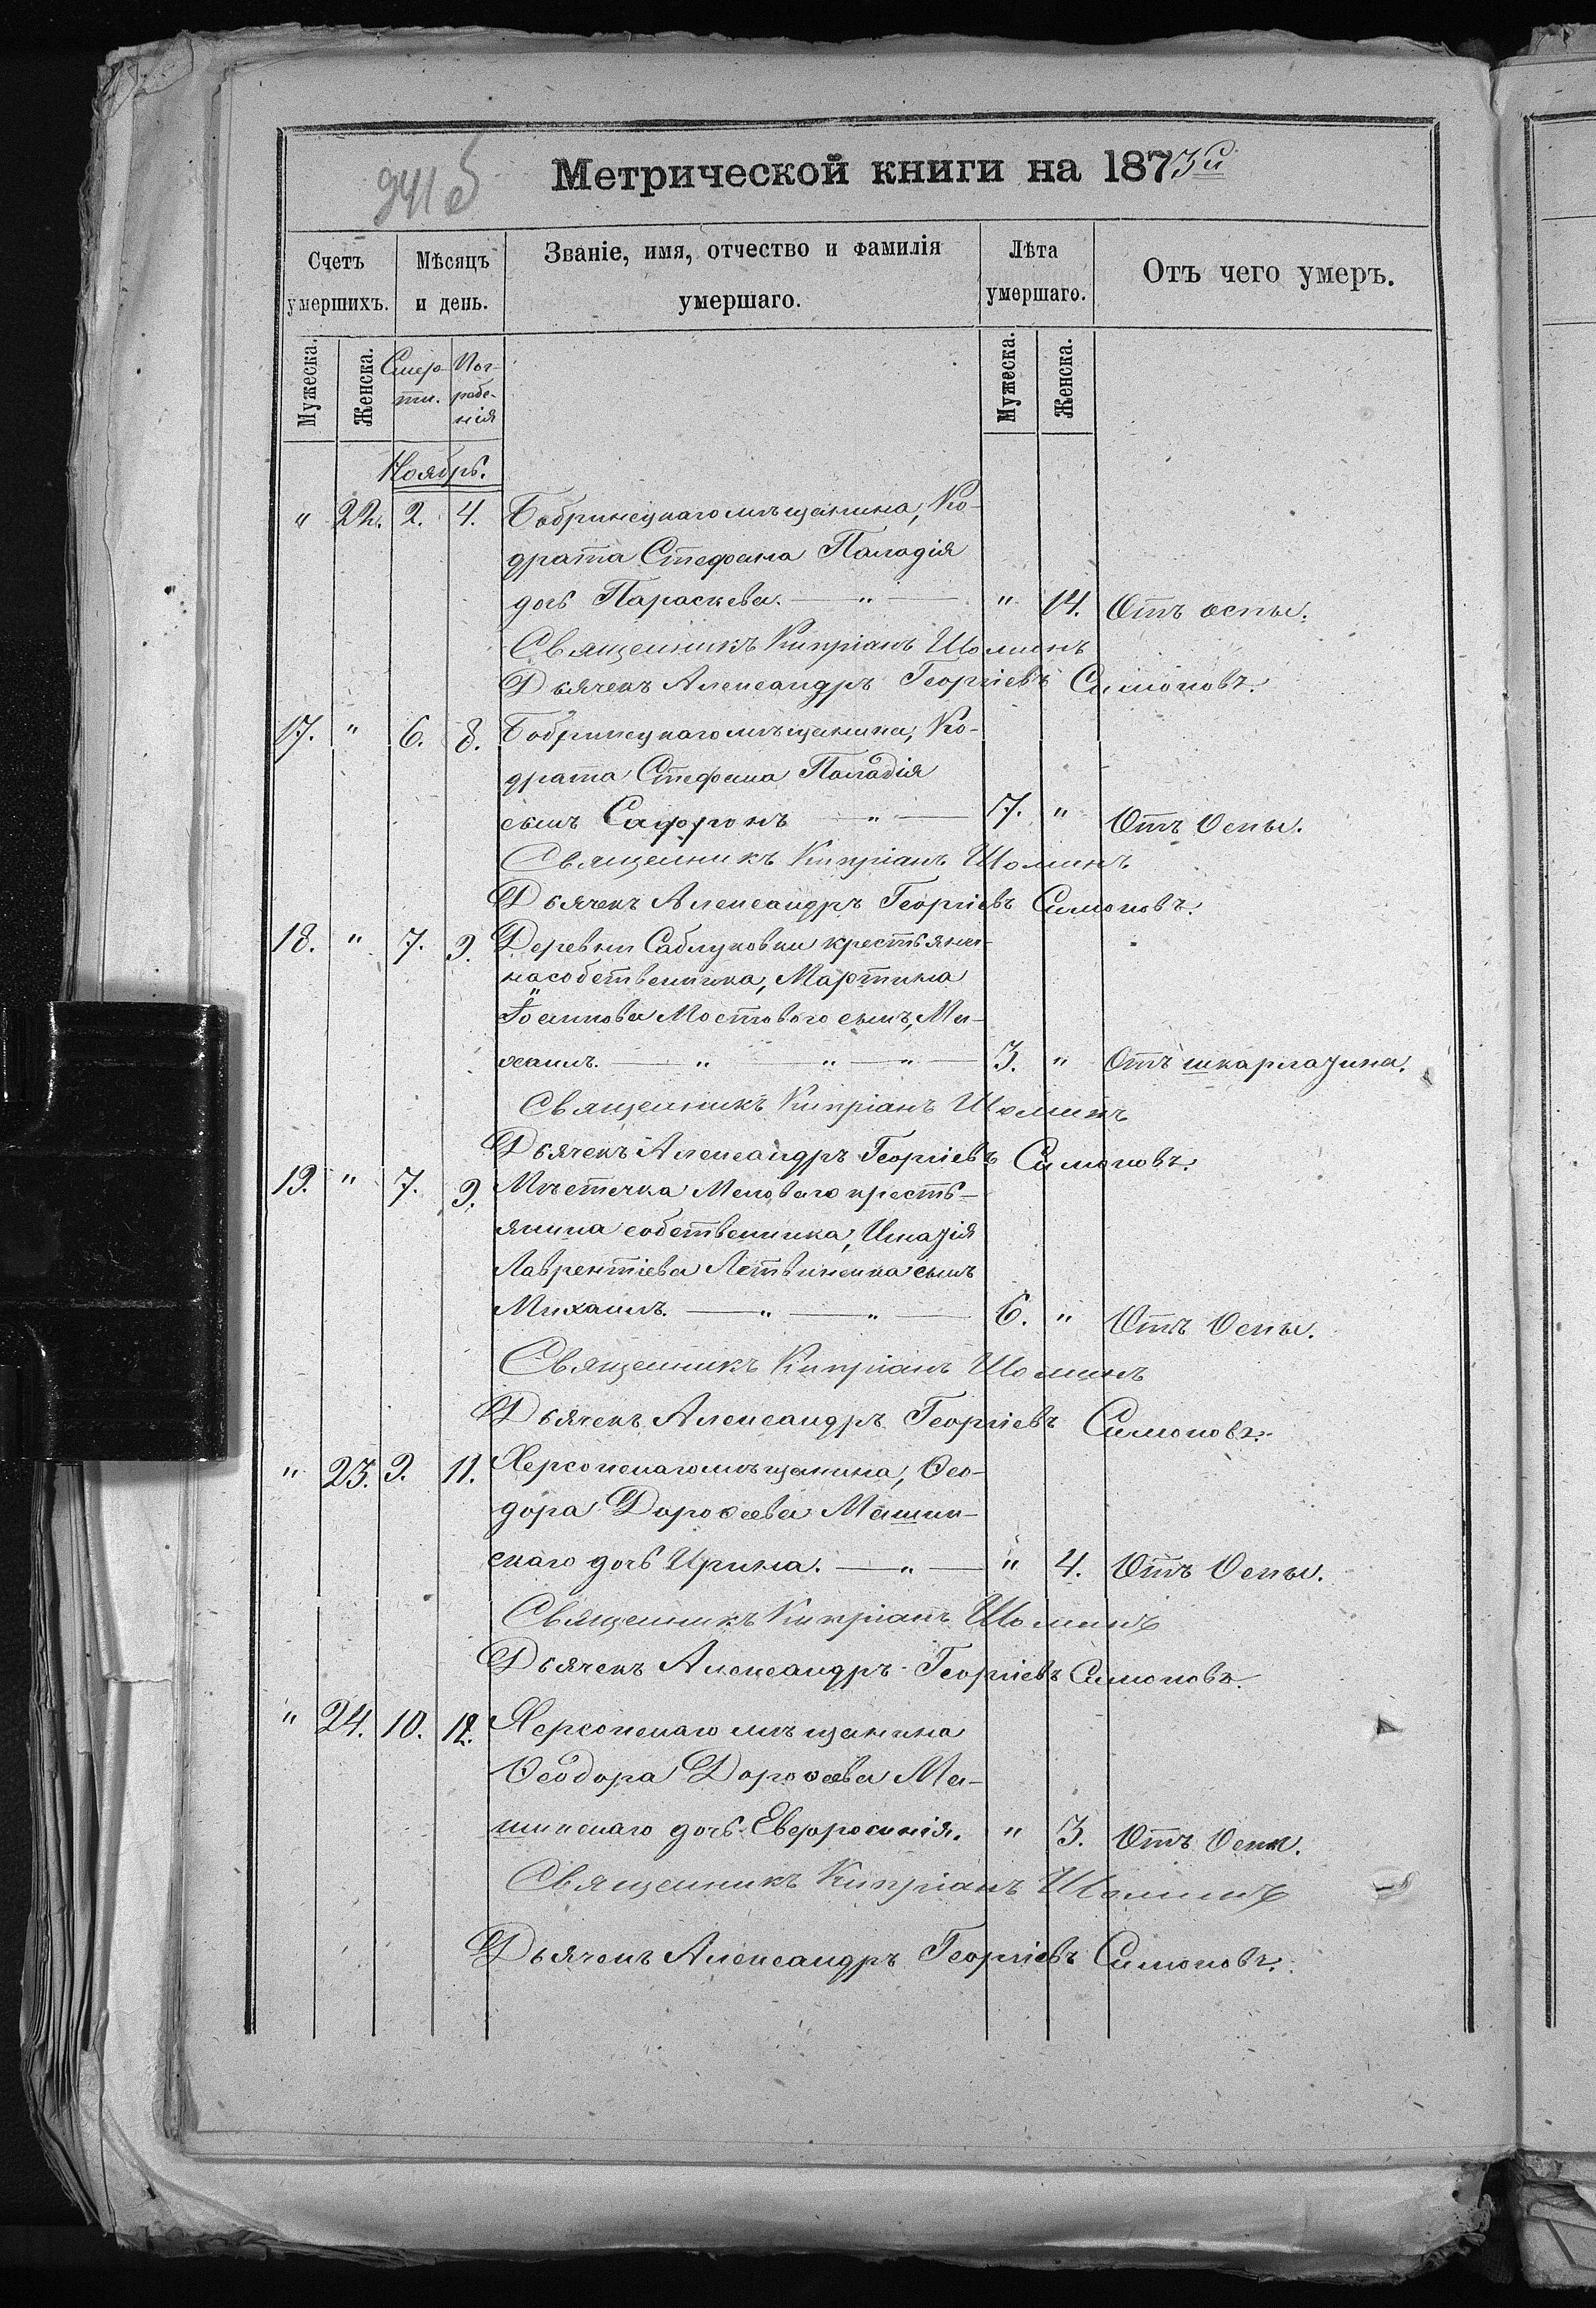 941 б
Метрической книги на 1873й
Счетъ умершихъ.
Мѣсяцъ и день.
Званіе, имя, отчество и фамилія умершаго.
Лѣта умершаго.
Отъ чего умеръ.
Мужеска.
Женска.
Смерти.
Погребенія
Мужеска.
Женска.
Ноябрь.
" 22. 2. 4. Бобринецкаго мѣщанина, Ко-
драта Стефана Паладія
дочь Параскева. — " — " 14. Отъ оспы.
Священникъ Кипріанъ Шоминъ
Дьячекъ Александръ Георгіевъ Симоновъ.
17. " 6. 8. Бобринецкаго мѣщанина, Ко-
драта Стефана Паладія
сынъ Сафронъ — " — 7. " Отъ Оспы.
Священникъ Кипріанъ Шоминъ
Дьячекъ Александръ Георгіевъ Симоновъ.
18. " 7. 9. Деревни Саблуковки крестьяни-
на собственника, Мартина
Іоаннова Мостового сынъ, Ми-
хаилъ. — " — " — " — 3. " Отъ шкарлазина.
Священникъ Кипріанъ Шоминъ
Дьячекъ Александръ Георгіевъ Симоновъ.
19. " 7. 9. Мѣстечка Меловаго кресть-
янина собственника, Игнатія
Лаврентіева Литвиненка сынъ
Михаилъ. — " — " — 6. " Отъ Оспы.
Священникъ Кипріанъ Шоминъ
Дьячекъ Александръ Георгіевъ Симоновъ.
" 23. 9. 11. Херсонскаго мѣщанина, Ѳео-
дора Дороѳеева Машин-
скаго дочь Ирина. — " — " 4. Отъ Оспы.
Священникъ Кипріанъ Шоминъ
Дьячекъ Александръ Георгіевъ Симоновъ.
" 24. 10. 12. Херсонскаго мѣщанина
Ѳеодора Дороѳеева Ма-
шинскаго дочь Евфросинія. " 3. Отъ Оспы.
Священникъ Кипріанъ Шоминъ
Дьячекъ Александръ Георгіевъ Симоновъ.